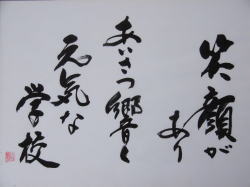 笑顔が
あり
あいさつ響く
元気な
学校